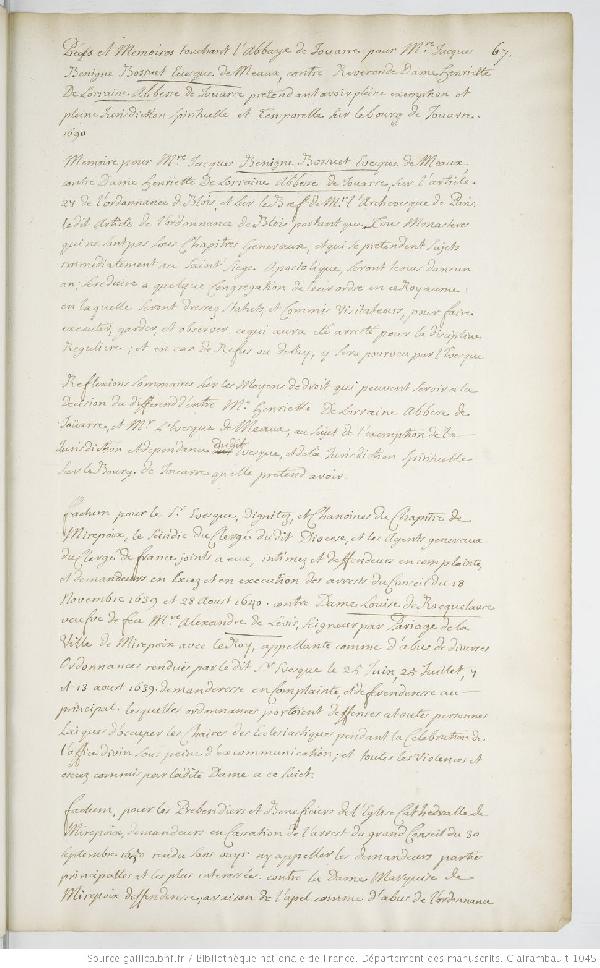 Pieces et Memoires touchant l'Abbaye de Jouarre pour Mre. Jacques 67.
Benigne Bossuet Evesque de Meaux, contre Reverende Dame Henriette
De Lorraine Abbesse de Jouarre pretendant avoir pleine exemption et
pleine Jurisdiction spirituelle et temporelle sur le bourg de Jouarre.
1690
Memoire pour Mre. Jacques Benigne Bossuet Evesque de Meaux
contre Dame Henriette De Lorraine Abbesse de Jouarre, sur l'article
27 de l'ordonnance de Blois, et sur le Bref de Mr. l'Archevesque de Paris
ledit Article de l'ordonnance de Blois portant que Tous Monasteres
qui ne sont pas sous Chapitres Generaux, et qui se pretendent sujets
immediatement au Saint Siege Apostolique, seront tenus dans un
an, se reduire a quelque Congregation de leur ordre en ce Royaume:
en laquelle seront dressez statuts, et Commis Visitateurs, pour faire
executer, garder, et observer ce qui aura esté arresté pour la discipline
Reguliere; et en cas de Refus ou Delay, y sera pourveu par l'Evesque
Reflexions sommaires sur les Moyens de droit qui peuvent servir a la
decision du different d'entre Me. Henriette De Lorraine Abbesse de
Joüarre, et Mr. L'Evesque de Meaux, au sujet de l'exemption de la
Jurisdiction et dependance dudit Evesque, et de la Jurisdiction spirituelle
sur le Bourg de Jouarre qu'elle pretend avoir.
factum pour le Sr. Evesque, Dignitez, et Chanoines du Chapitre de
Mirepoix, le scindic du Clergé dudit Diocese, et les Agents generaux
du Clergé de france joints a eux, intimez et deffendeurs en complainte,
et demandeurs en excez et en execution des arrests du Conseil du 18
Novembre 1639 et 28 Aoust 1640. contre Dame Louise de Rocquelaure
veufve de feu Mre. Alexandre de Levis, seigneur par Pariage de la
Ville de Mirepoix avec le Roy, appellante comme d'abus de diverses
ordonnances rendues par ledit Sr. Evesque le 25 Juin, 25 Juillet, 7
et 13 aoust 1639. demanderesse en Complainte, et deffenderesse au
principal. lesquelles ordonnances portoient deffenses a toutes personnes
Laiques d'occuper les Chaires des Ecclesiastiques pendant la Celebration de
l'office divin sous peine d'excommunication; et toutes les Violences et
excez commis par ladite Dame a ce sujet.
factum, pour les Prebendiers et Beneficiers de l'Eglise Cathedralle de
Mirepoix, demandeurs en Cassation de l'arrest du grand Conseil du 30
septembre 1650 rendu sans ouyr ny appeller les demandeurs parties
principalles et les plus interessées. contre la Dame Marquise de
Mirepoix deffenderesse, a raison de l'apel comme d'abus de l'ordonnance
Source gallica.bnf.fr / Bibliothèque nationale de France. Département des manuscrits. Clairambault 1045